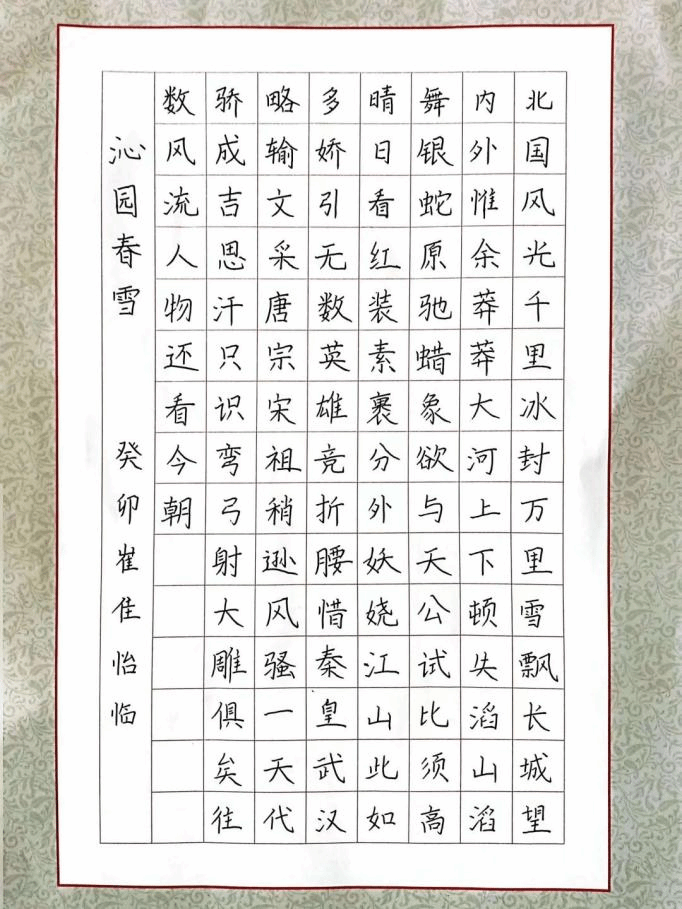 北国风光千里冰封万里雪飘长城望
内外惟余莽莽大河上下顿失滔山滔
舞银蛇原驰蜡象欲与天公试比须高
晴日看红装素裹分外妖娆江山此如
多娇引无数英雄竞折腰惜秦皇武汉
略输文采唐宗宋祖稍逊风骚一天代
骄成吉思汗只识弯弓射大雕俱矣往
数风流人物还看今朝
沁园春雪 癸卯崔佳怡临